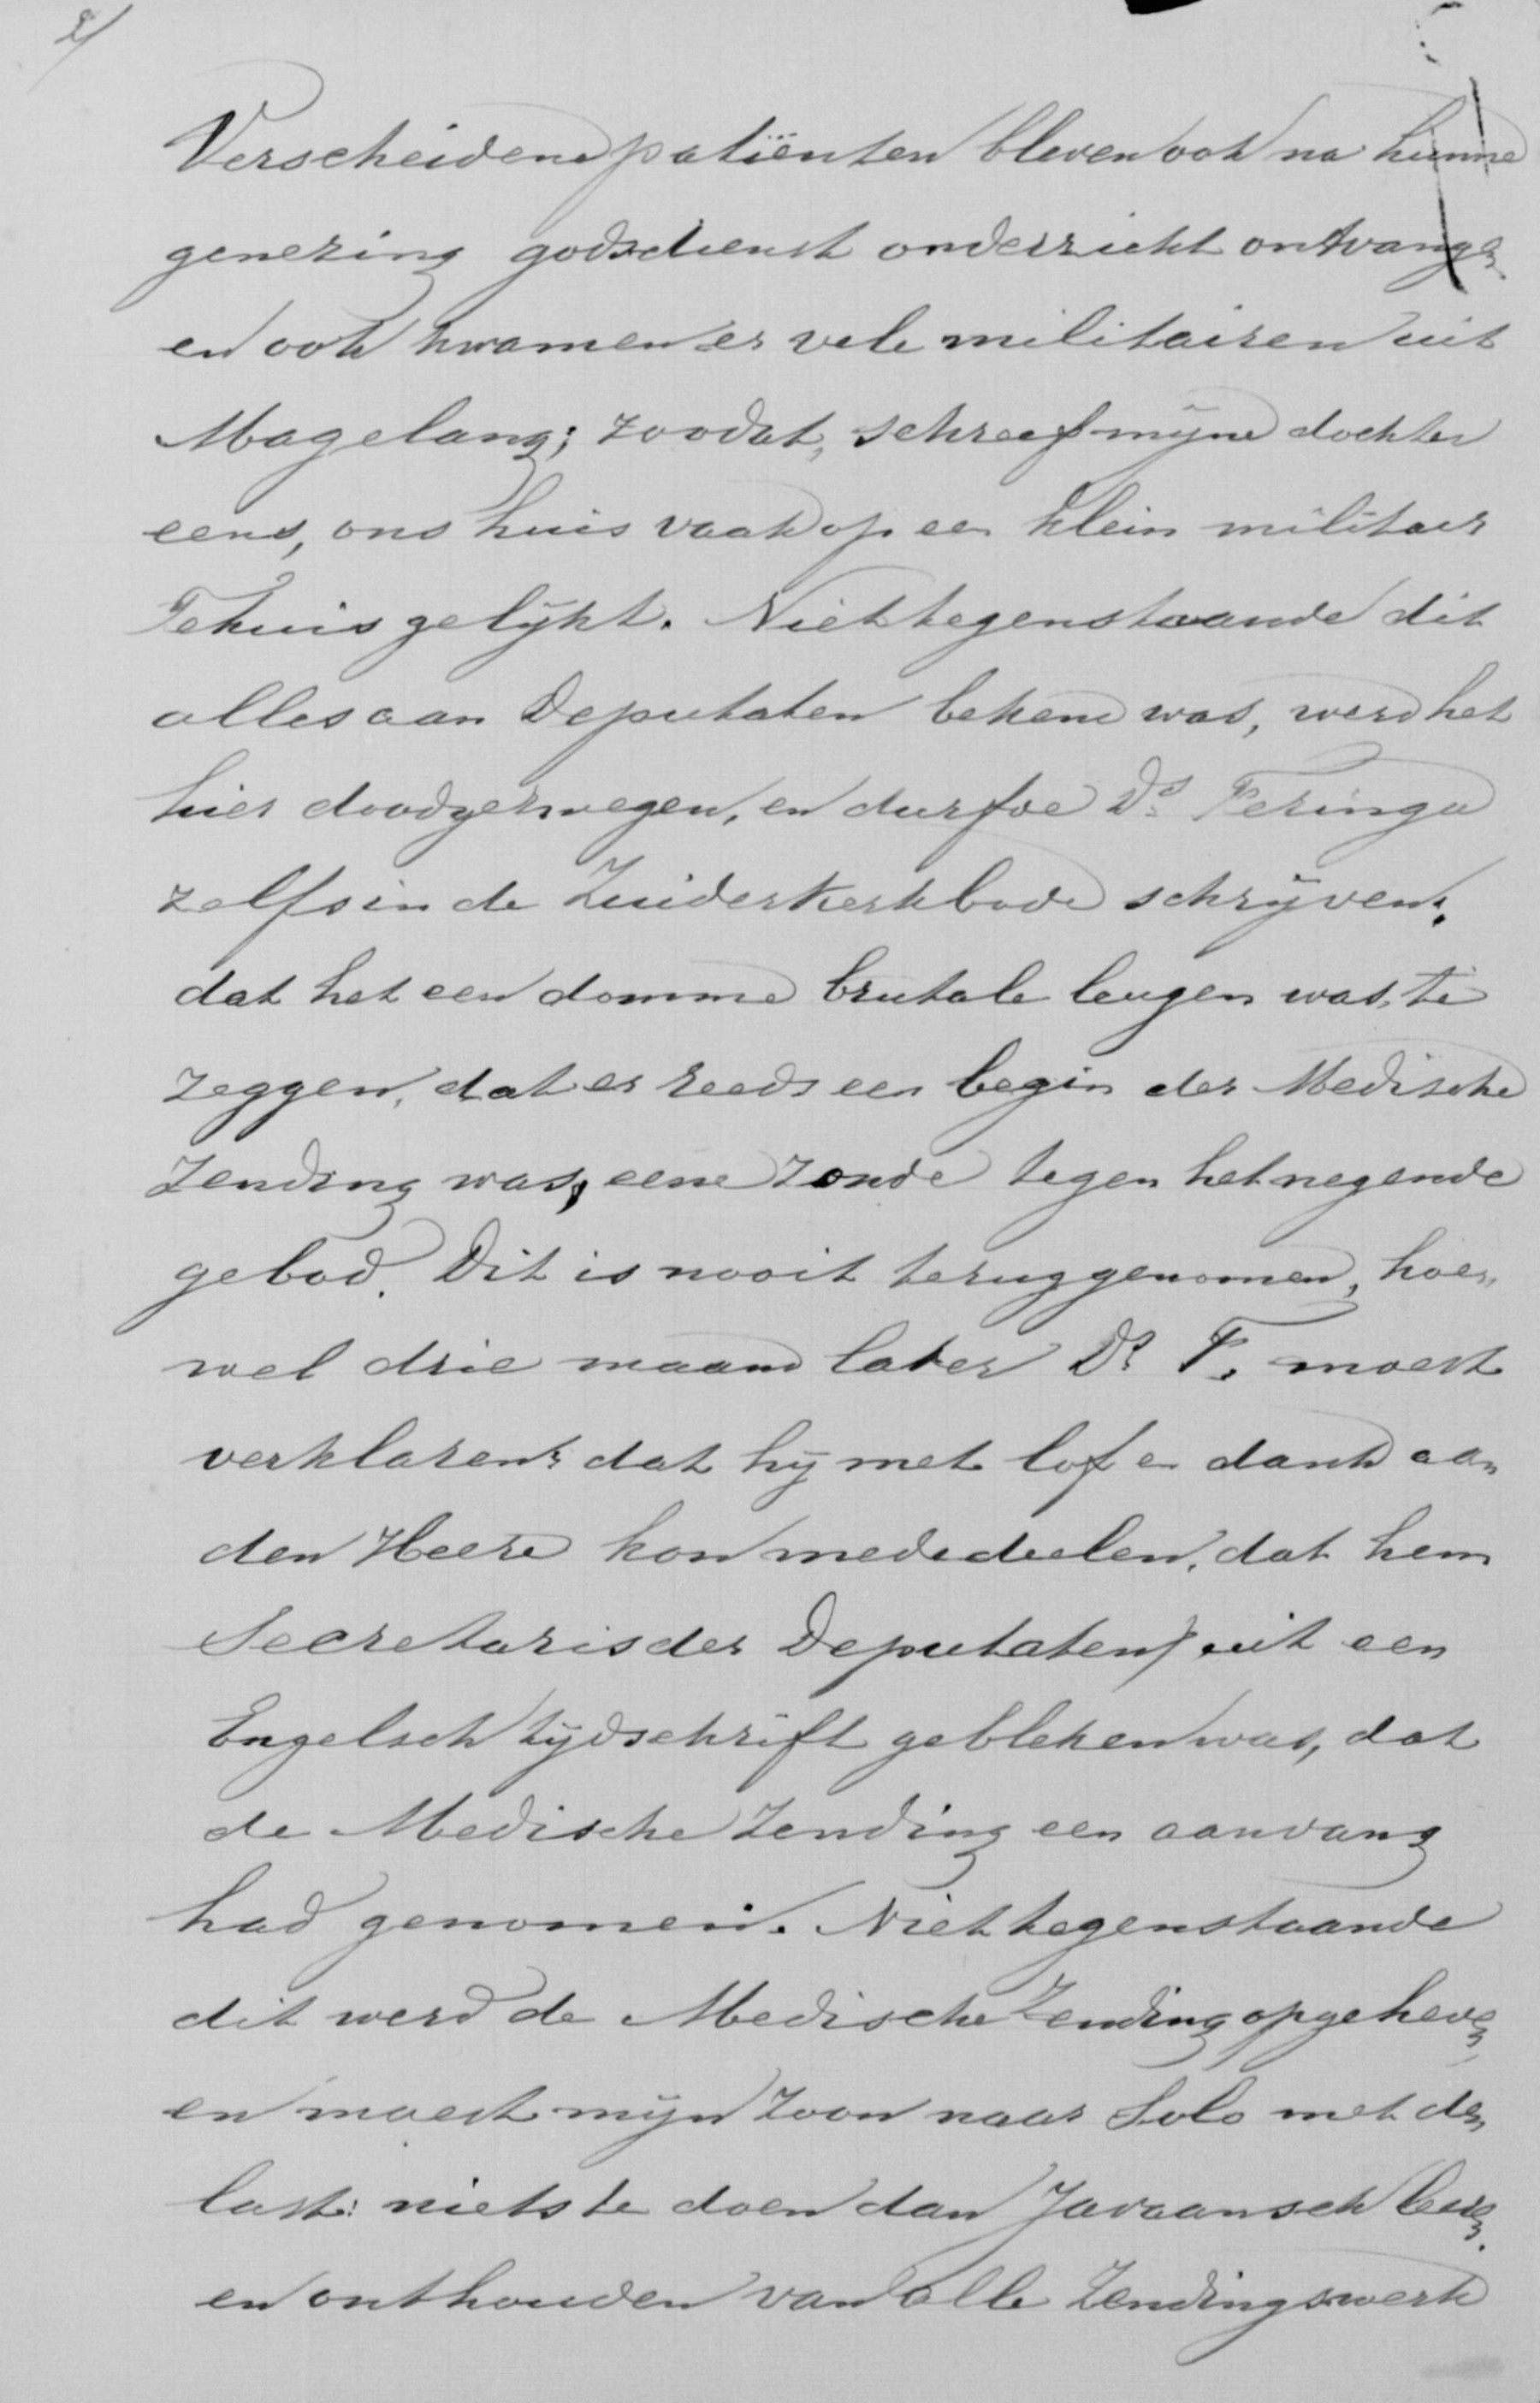 2/
Verscheidene patiënten bleven ook na hunne
genezing godsdienst onderricht ontvangen
en ook kwamen er vele militairen uit
Magelang; zoodat, schreef mijne dochter
eens, ons huis vaak op een klein militair
Tehuis gelijkt. Niettegenstaande dit
alles aan Deputaten bekend was, werd het
hier doodgezwegen, en durfde Ds. Feringa
zelfs in de Zuider Kerkbode schrijven:
dat het een domme brutale leugen was, te
zeggen, dat er reeds een begin der Medische
Zending was, eene zonde tegen het negende
gebod. Dit is nooit teruggenomen, hoe,
wel drie maand later Ds. F. moest
verklaren: dat hij met lof en dank aan
den Heere kon mededeelen, dat hem
Secretaris der Deputaten) uit een
Engelsch tijdschrift gebleken was, dat
de Medische Zending een aanvang
had genomen. Niettegenstaande
dit werd de Medische Zending opgeheven
en moest mijn zoon naar Solo met den
last: niets te doen dan Javaansch leeren.
en onthouden van alle Zendingswerk